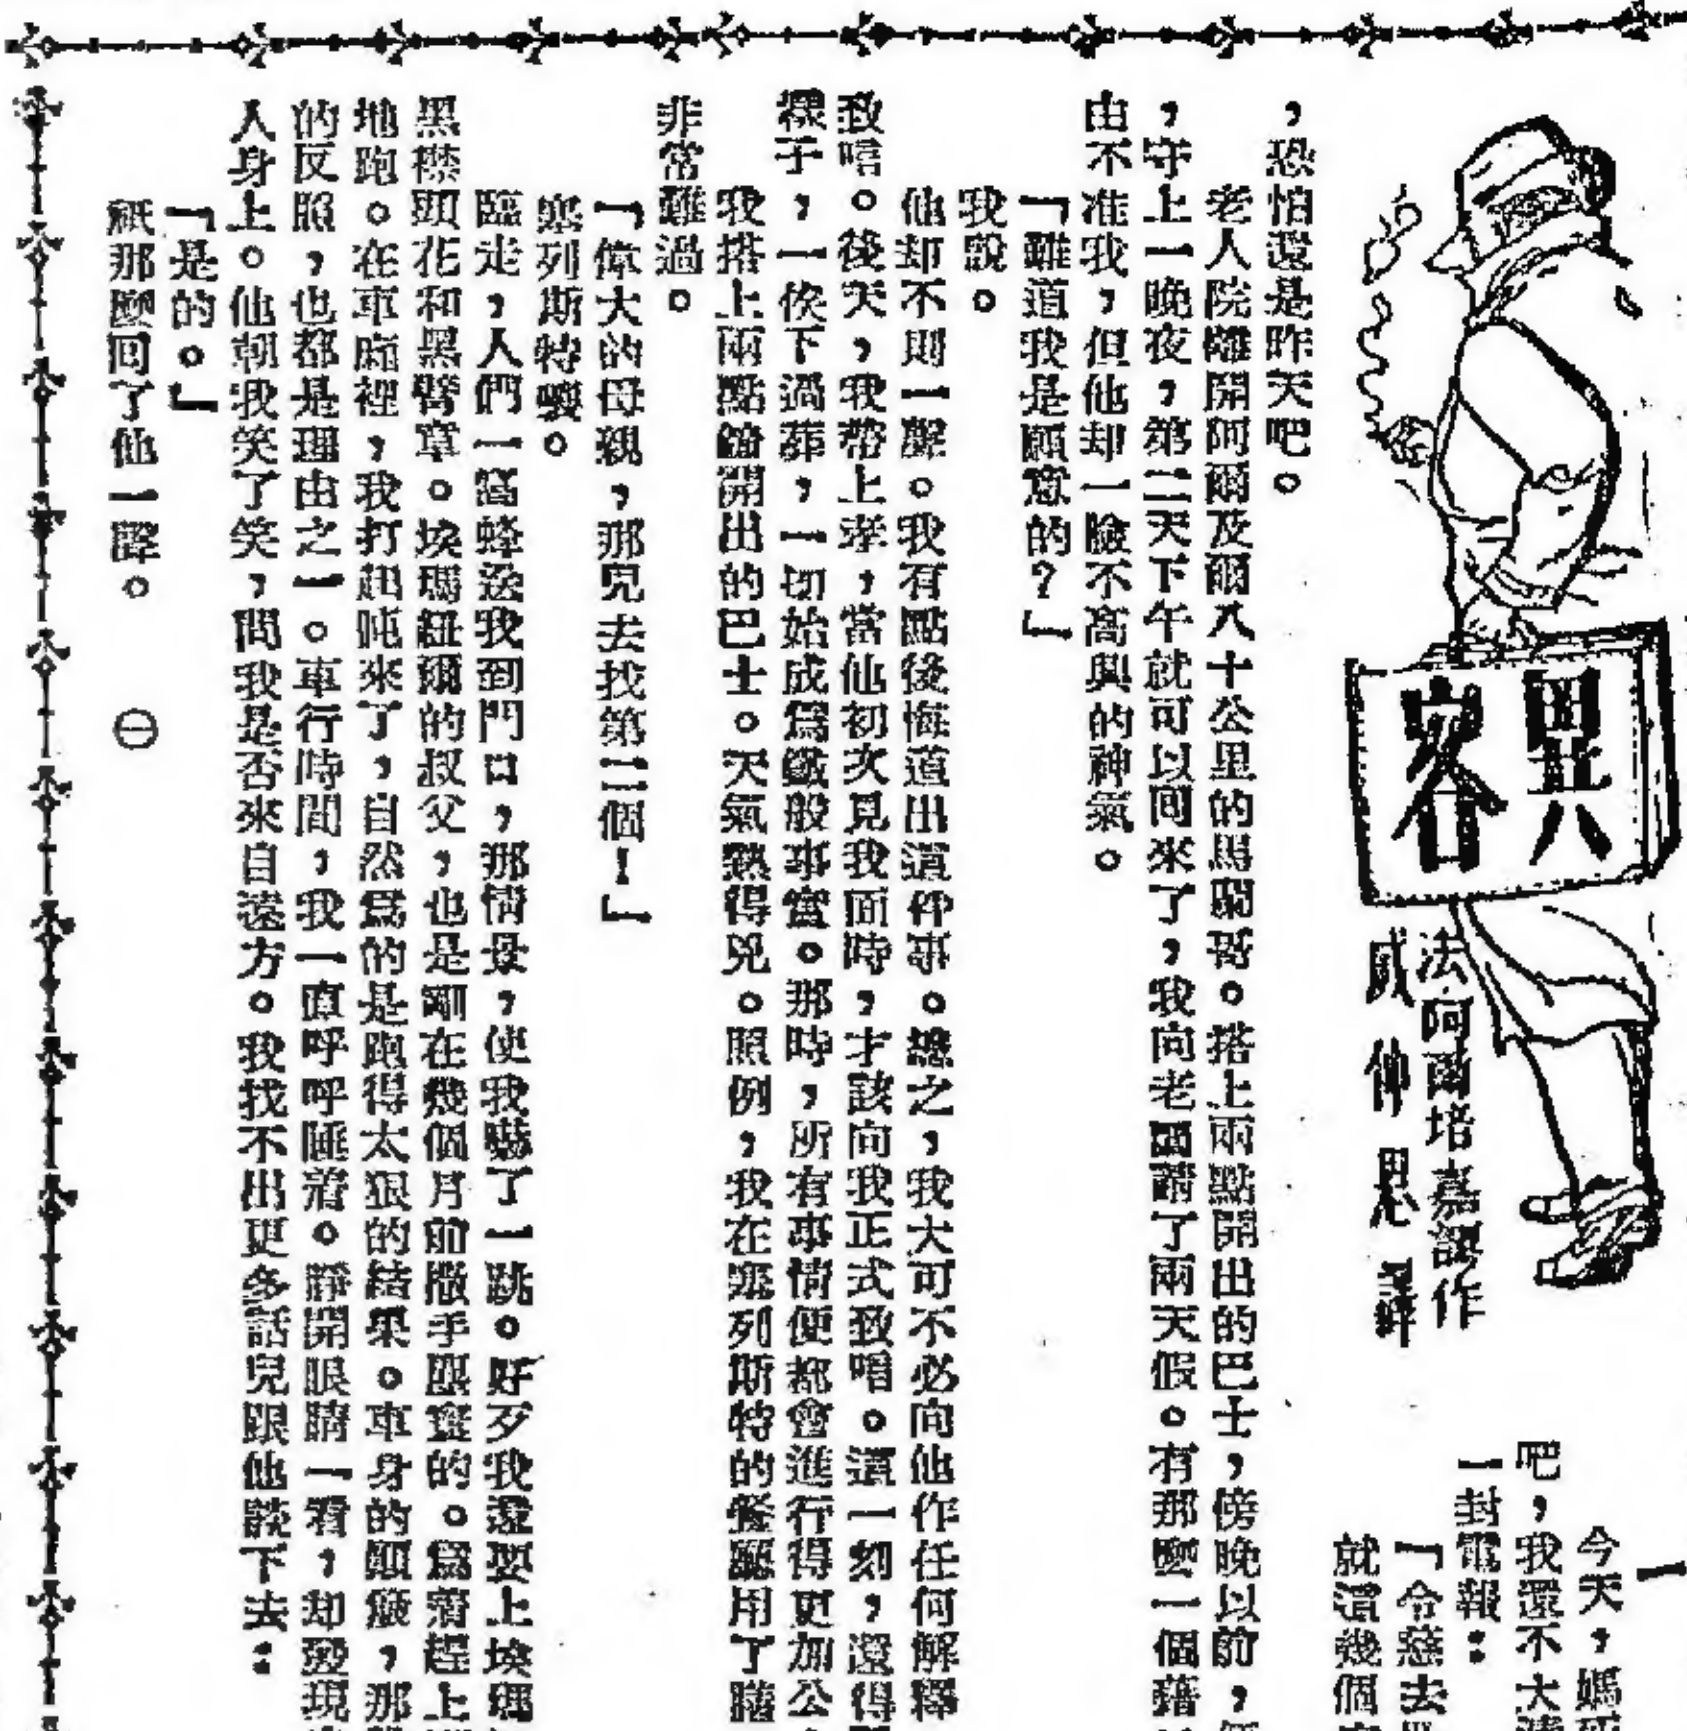 異客
法阿爾培嘉謬作
威仲思譯
一
今天，媽
吧，我還不大
一封電報：
「令慈去
就這幾個
，恐怕還是昨天吧。
老人院離開阿爾及爾八十公里的馬闌哥。搭上兩點開出的巴士，傍晚以前，
，守上一晚夜，第二天下午就可以回來了，我向老闆請了兩天假。有那麼一個藉
由不准我，但他却一臉不高興的神氣。
「難道我是願意的？」
我說。
他却不則一聲。我有點後悔道出這件事。總之，我大可不必向他作任何解釋
致唁。後天，我帶上孝，當他初次見我面時，才該向我正式致唁。這一刻，還得
樣子，一俟下過葬，一切始成爲鐵般事實。那時，所有事情便都會進行得更加公
我搭上兩點鐘開出的巴士。天氣熱得兇。照例，我在塞列斯特的餐廳用了膳
非常難過。
「偉大的母親，那兒去找第二個！」
塞列斯特嘆。
臨走，人們一窩蜂送我到門口，那情景，使我嚇了一跳。好歹我還要上埃瑪
黑襟頭花和黑臂章。埃瑪紐爾的叔父，也是剛在幾個月前撒手塵寰的。爲着趕上
地跑。在車廂裡，我打起盹來了，自然爲的是跑得太狠的結果。車身的顛簸，那
的反照，也都是理由之一。車行時間，我一直呼呼睡着。睜開眼睛一看，却發現
人身上。他朝我笑了笑，問我是否來自遠方。我找不出更多話兒跟他談下去：
「是的。」
祇那麼回了他一聲。 ㊀